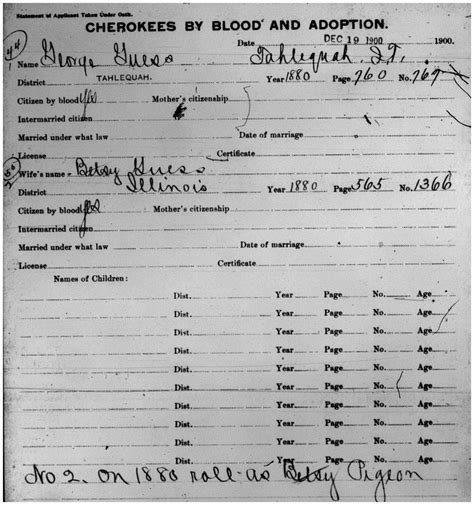 Statement of Applicant Taken Under Oath.
CHEROKEES BY BLOOD AND ADOPTION.
Date DEC 19 1900 1900.
44
1 Name George Guess Tahlequah, I.T.
District TAHLEQUAH. Year 1880 Page 760 No. 767
Citizen by blood Yes Mother's citizenship
Intermarried citizen
Married under what law Date of marriage
License Certificate
2 Wife's name Betsy Guess
District Illinois Year 1880 Page 565 No. 1366
Citizen by blood Yes Mother's citizenship
Intermarried citizen
Married under what law Date of marriage
License Certificate
Names of Children:
Dist. Year Page No. Age
Dist. Year Page No. Age
Dist. Year Page No. Age
Dist. Year Page No. Age
Dist. Year Page No. Age
Dist. Year Page No. Age
Dist. Year Page No. Age
Dist. Year Page No. Age
Dist. Year Page No. Age
Dist. Year Page No. Age
No 2. on 1880 roll as Betsy Pigeon